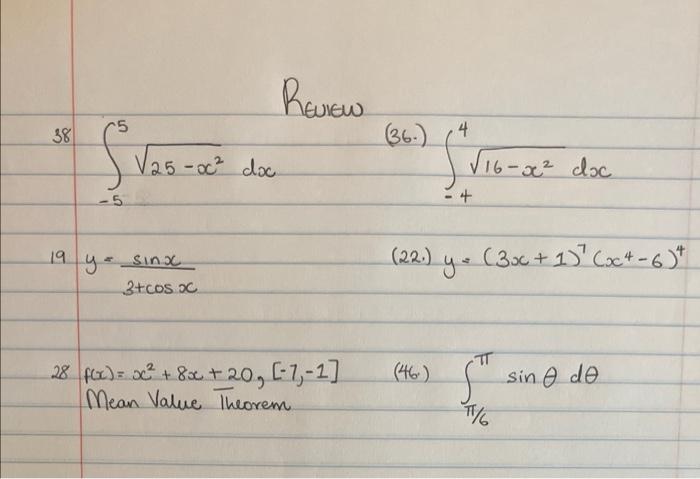 Review
38 ∫₋₅⁵ √25-x² dx
(36.) ∫₋₄⁴ √16-x² dx
19 y = sinx / 3+cosx
(22.) y = (3x+1)⁷(x⁴-6)⁴
28 f(x)= x²+8x+20, [-7,-1]
Mean Value Theorem
(46.) ∫_{π/6}^{π} sin θ dθ